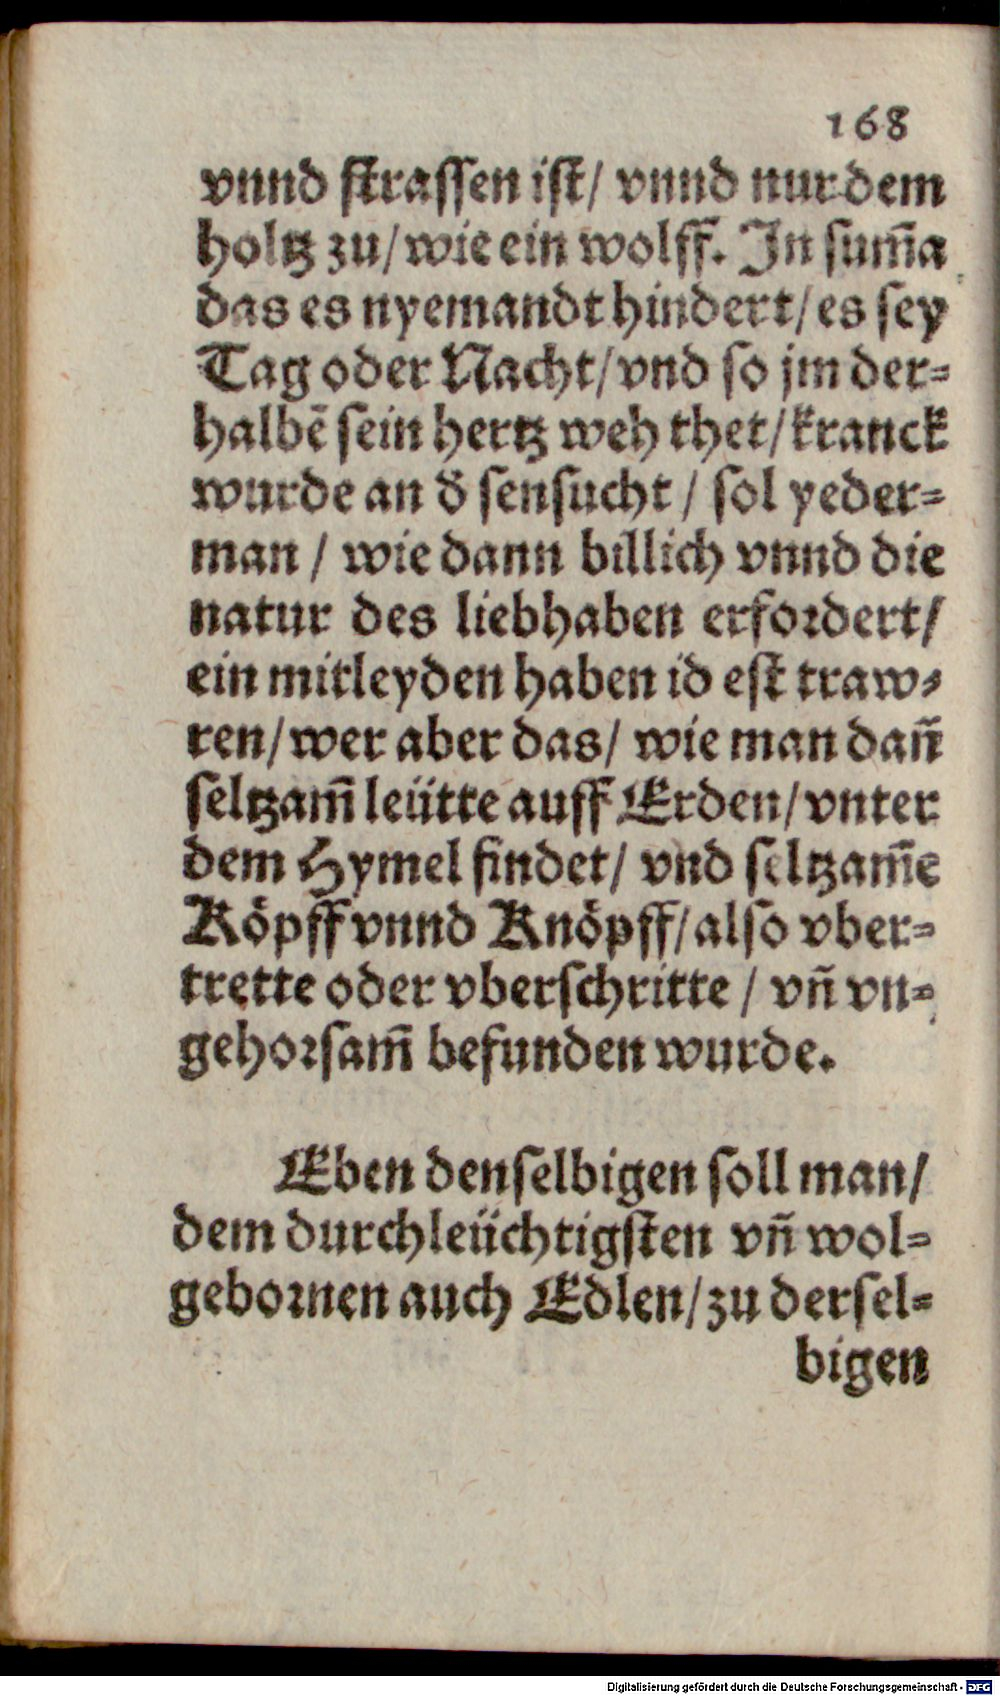 168
vnnd ſtraſſen iſt/ vnnd nur dem
holtz zu/ wie ein wolff. In ſum̃a
das es nyemandt hindert/ es ſey
Tag oder Nacht/ vnd ſo jm der⸗
halbẽ ſein hertz weh thet/ kranck
wurde an d̓ ſenſucht / ſol yeder⸗
man / wie dann billich vnnd die
natur des liebhaben erfordert/
ein mitleyden haben id eſt traw⸗
ren/ wer aber das/ wie man dañ
ſeltzam̃ leütte auff Erden/ vnter
dem Hymel findet/ vnd ſeltzam̃e
Köpff vnnd Knöpff/ alſo vber⸗
trette oder vberſchritte / vñ vn⸗
gehorſam̃ befunden wurde.
Eben denſelbigen ſoll man/
dem durchleüchtigſten vñ wol⸗
gebornen auch Edlen/ zu derſel⸗
bigen
Digitalisierung gefördert durch die Deutsche Forschungsgemeinschaft - DFG